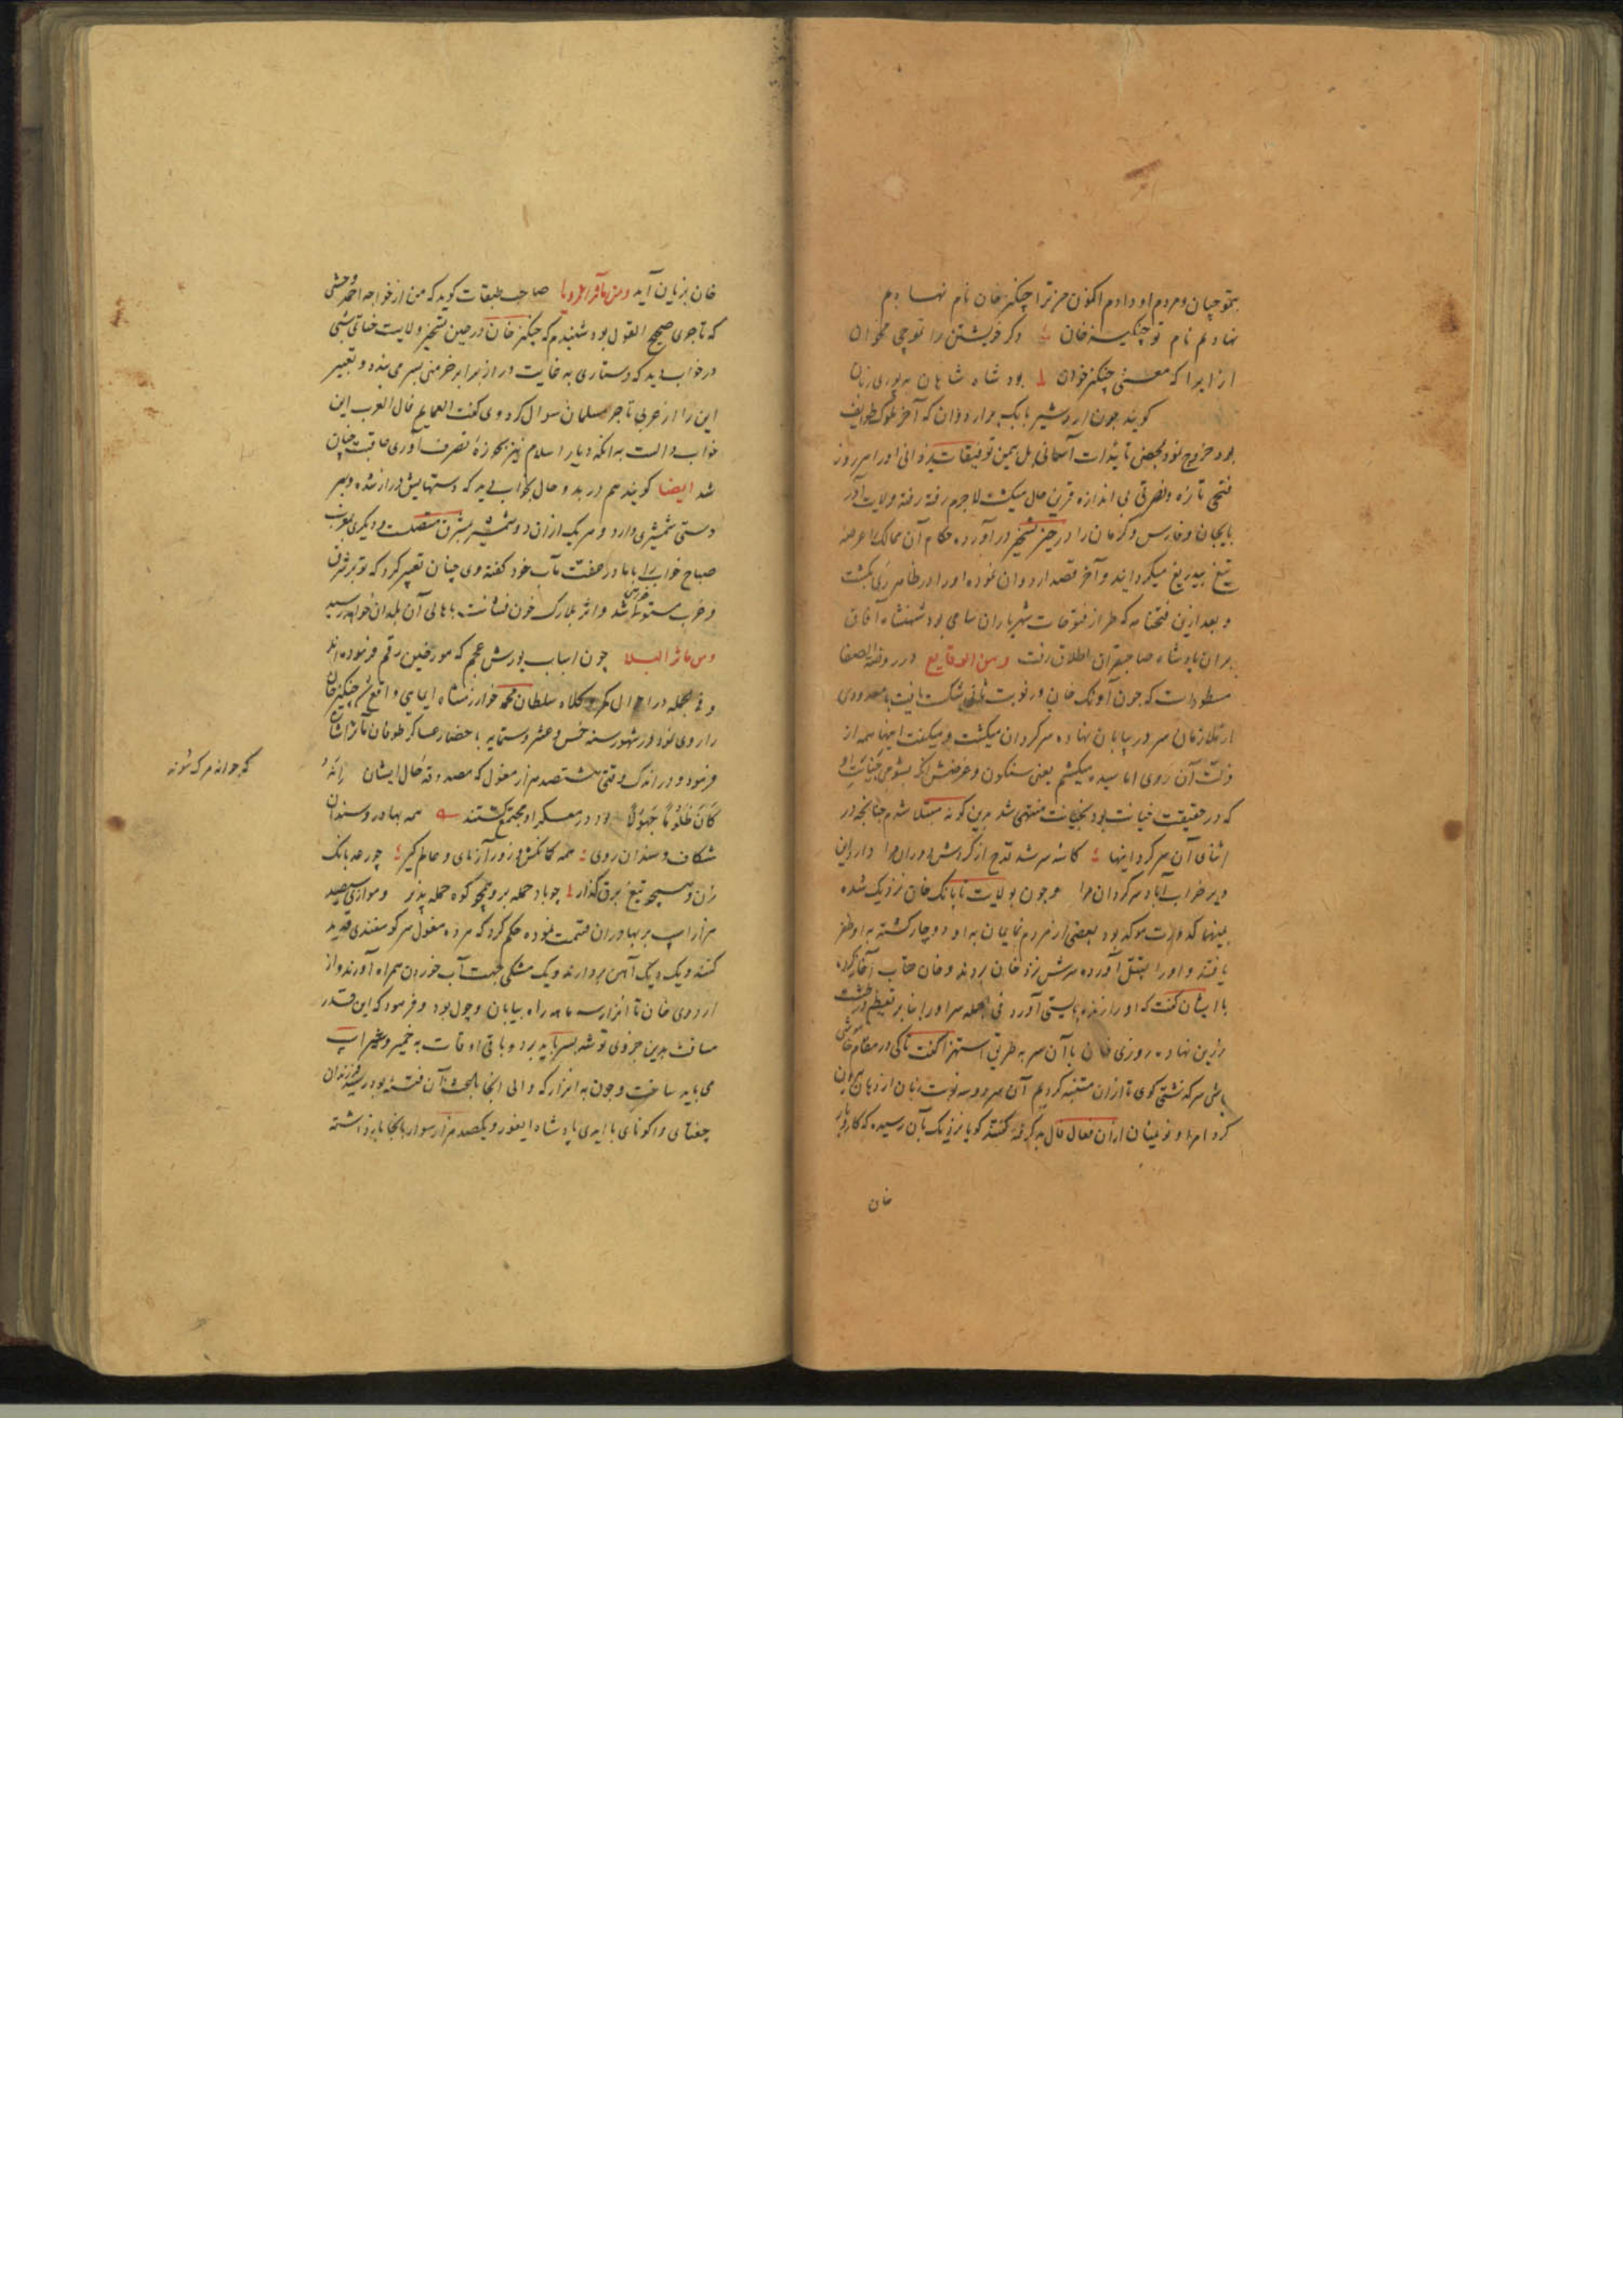 بتموجیان و مردم او دادم اکنون مر ترا چنگیز خان نام نهادم
نهادم نام تو چنگیز خان دگر خویشتن را تموجی مخوان
ازایرا که معنی چنگیز خوان بود شاه شاهان به توری زبان
گویند چون اردشیر بابک بر اردوان که آخر ملوک طوایف
بود خروج نمود بمحض تائیدات آسمانی بل بیمن توفیقات یزدانی او را هر روز
فتحی تازه و نصرتی بی اندازه قرین حال میگشت لاجرم رفته رفته ولایت آذر
بایجان و فارس و کرمان را در حیز تسخیر در آورده حکام آن ممالک را عرضه
تیغ بیدریغ میگردانید و آخر قصد اردوان نموده او را در ظاهر ری بکشت
و بعد ازین فتحنامه که طراز فتوحات شهریاران نامی بود شهنشاه آفاق
بر آن پادشاه صاحبقران اطلاق رفت ومن الوقایع در روضة الصفا
مسطور است که چون آونک خان در نوبت ثانی شکست یافت با معدودی
از ملازمان سر در بیابان نهاده سرگردان میگشت و میگفت اینها همه از
که در حقیقت خیانت بود بخیانت منتهی شد بدین گونه مبتلا شدم چنانچه در
اثنای آن سرگردانیها کاسه سر شد قدح از گردش دوران مرا دارد این
دیر خراب آباد سرگردان مرا و چون بولایت تایانک خان نزدیک شده
بینهما کدورت موکد بود بعضی از مردم نمایمان به او دوچار گشته به او ظفر
یافتند و او را بقتل آورده سرش نزد خان بردند و خان عتاب آغاز کرده
با ایشان گفت که او را زنده بایستی آورد فی الجمله سر او را بنا بر تعظیم در طشت
زرین نهاده روزی خان با آن سر به طریق استهزا گفت تا کی در مقام خاموشی
باشی سرگذشتی گوی تا از آن متنبه گردیم آن سر دو سه نوبت زبان از دهان بیرون
کرد امرا و نوینان از آن فعال فال بد گرفته گفتند گویا نزدیک بآن رسیده که کار و بار
خان
خان بزیان آید ومن مآثر الرویا صاحب طبقات گوید که من از خواجه احمد وخشی
که تاجری صحیح القول بود شنیدم که چنگیز خان در حین تسخیر ولایت ختای شبی
در خواب دید که دستاری به غایت دراز برابر خرمنی بسر می بندد و تعبیر
این را از عربی تاجر مسلمان سوال کرد وی گفت العمایم تاج العرب این
خواب دالست به آنکه دیار اسلام نیز بحوزه تصرف آوری عاقبت چنان
شد ایضا گویند هم در بدو حال بخواب دید که دستهایش دراز شده و بهر
دستی شمشیری دارد و سر یک از آن دو شمشیر بشرق متصلست و دیگری بغرب
صباح خواب را با مادر عفت مآب خود گفته وی چنان تعبیر کرد که تو بر شرق
و غرب مستولی خواهی شد و اثر بلارک خون فشانت باهالی آن بلدان خواهد رسید
ومن مآثر البلا چون اسباب یورش عجم که مورخین رقم فرموده اند
را روی نمود در شهور سنه خمس عشر و ستمایه باحضار عساکر طوفان مآثر اشارت
فرمود و در اندک وقتی هشتصد هزار مغول که مصدوقه حال ایشان إِنَّهُ
كَانَ ظَلُومًا جَهُولًا بود در معسکر او مجتمع گشتند همه بهادر و سندان
شکاف و سندان روی همه کمانکش و زورآزمای و عالم گیر چو رعد بانگ
زن و همچو تیغ برق گذار چو باد حمله بر و همچو کوه حمله پذیر و موازی سیصد
هزار اسپ بر بهادران قسمت نموده حکم کرد که هر ده مغول سر گوسفندی قدید
کنند و یک دیگ آهن بردارند و یک مشکی جهت آب خوردن همراه آورند و از
اردوی خان تا اترار سه ماهه راه بیابان و چول بود و فرمود که این قدر
مسافت بدین جزوی توشه بسر باید برد و باقی اوقات به قمیز و شیر اسپ
می باید ساخت و چون به اترار که والی آنجا باعث آن فتنه بود رسید فرزندان
جغتای و اوکتای با ایدی پادشاه ایغور و یکصد هزار سوار بآنجا بازداشته